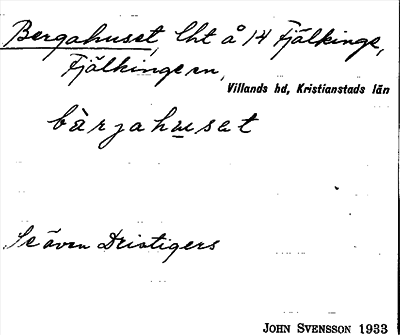 Bergahuset, lht å 14 Fjälkinge,
Fjälkinge sn,
Villands hd, Kristianstads län
bärjahuset
Se även Dristigers
JOHN SVENSSON 1933